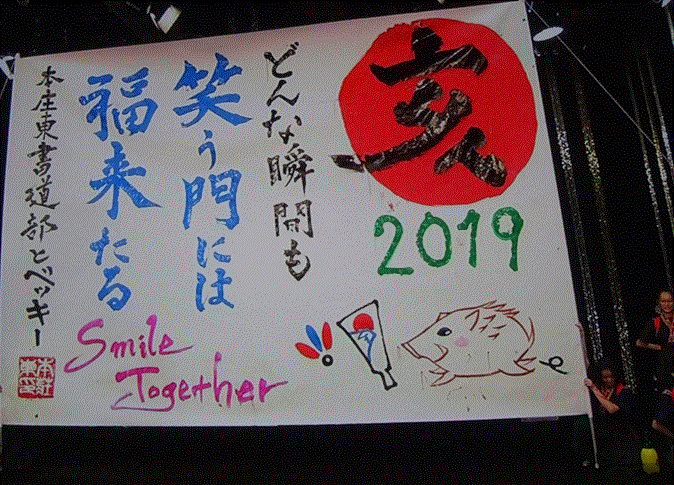 亥
2019
どんな瞬間も
笑う門には
福来たる
本庄東書道部とベッキー
Smile
Together